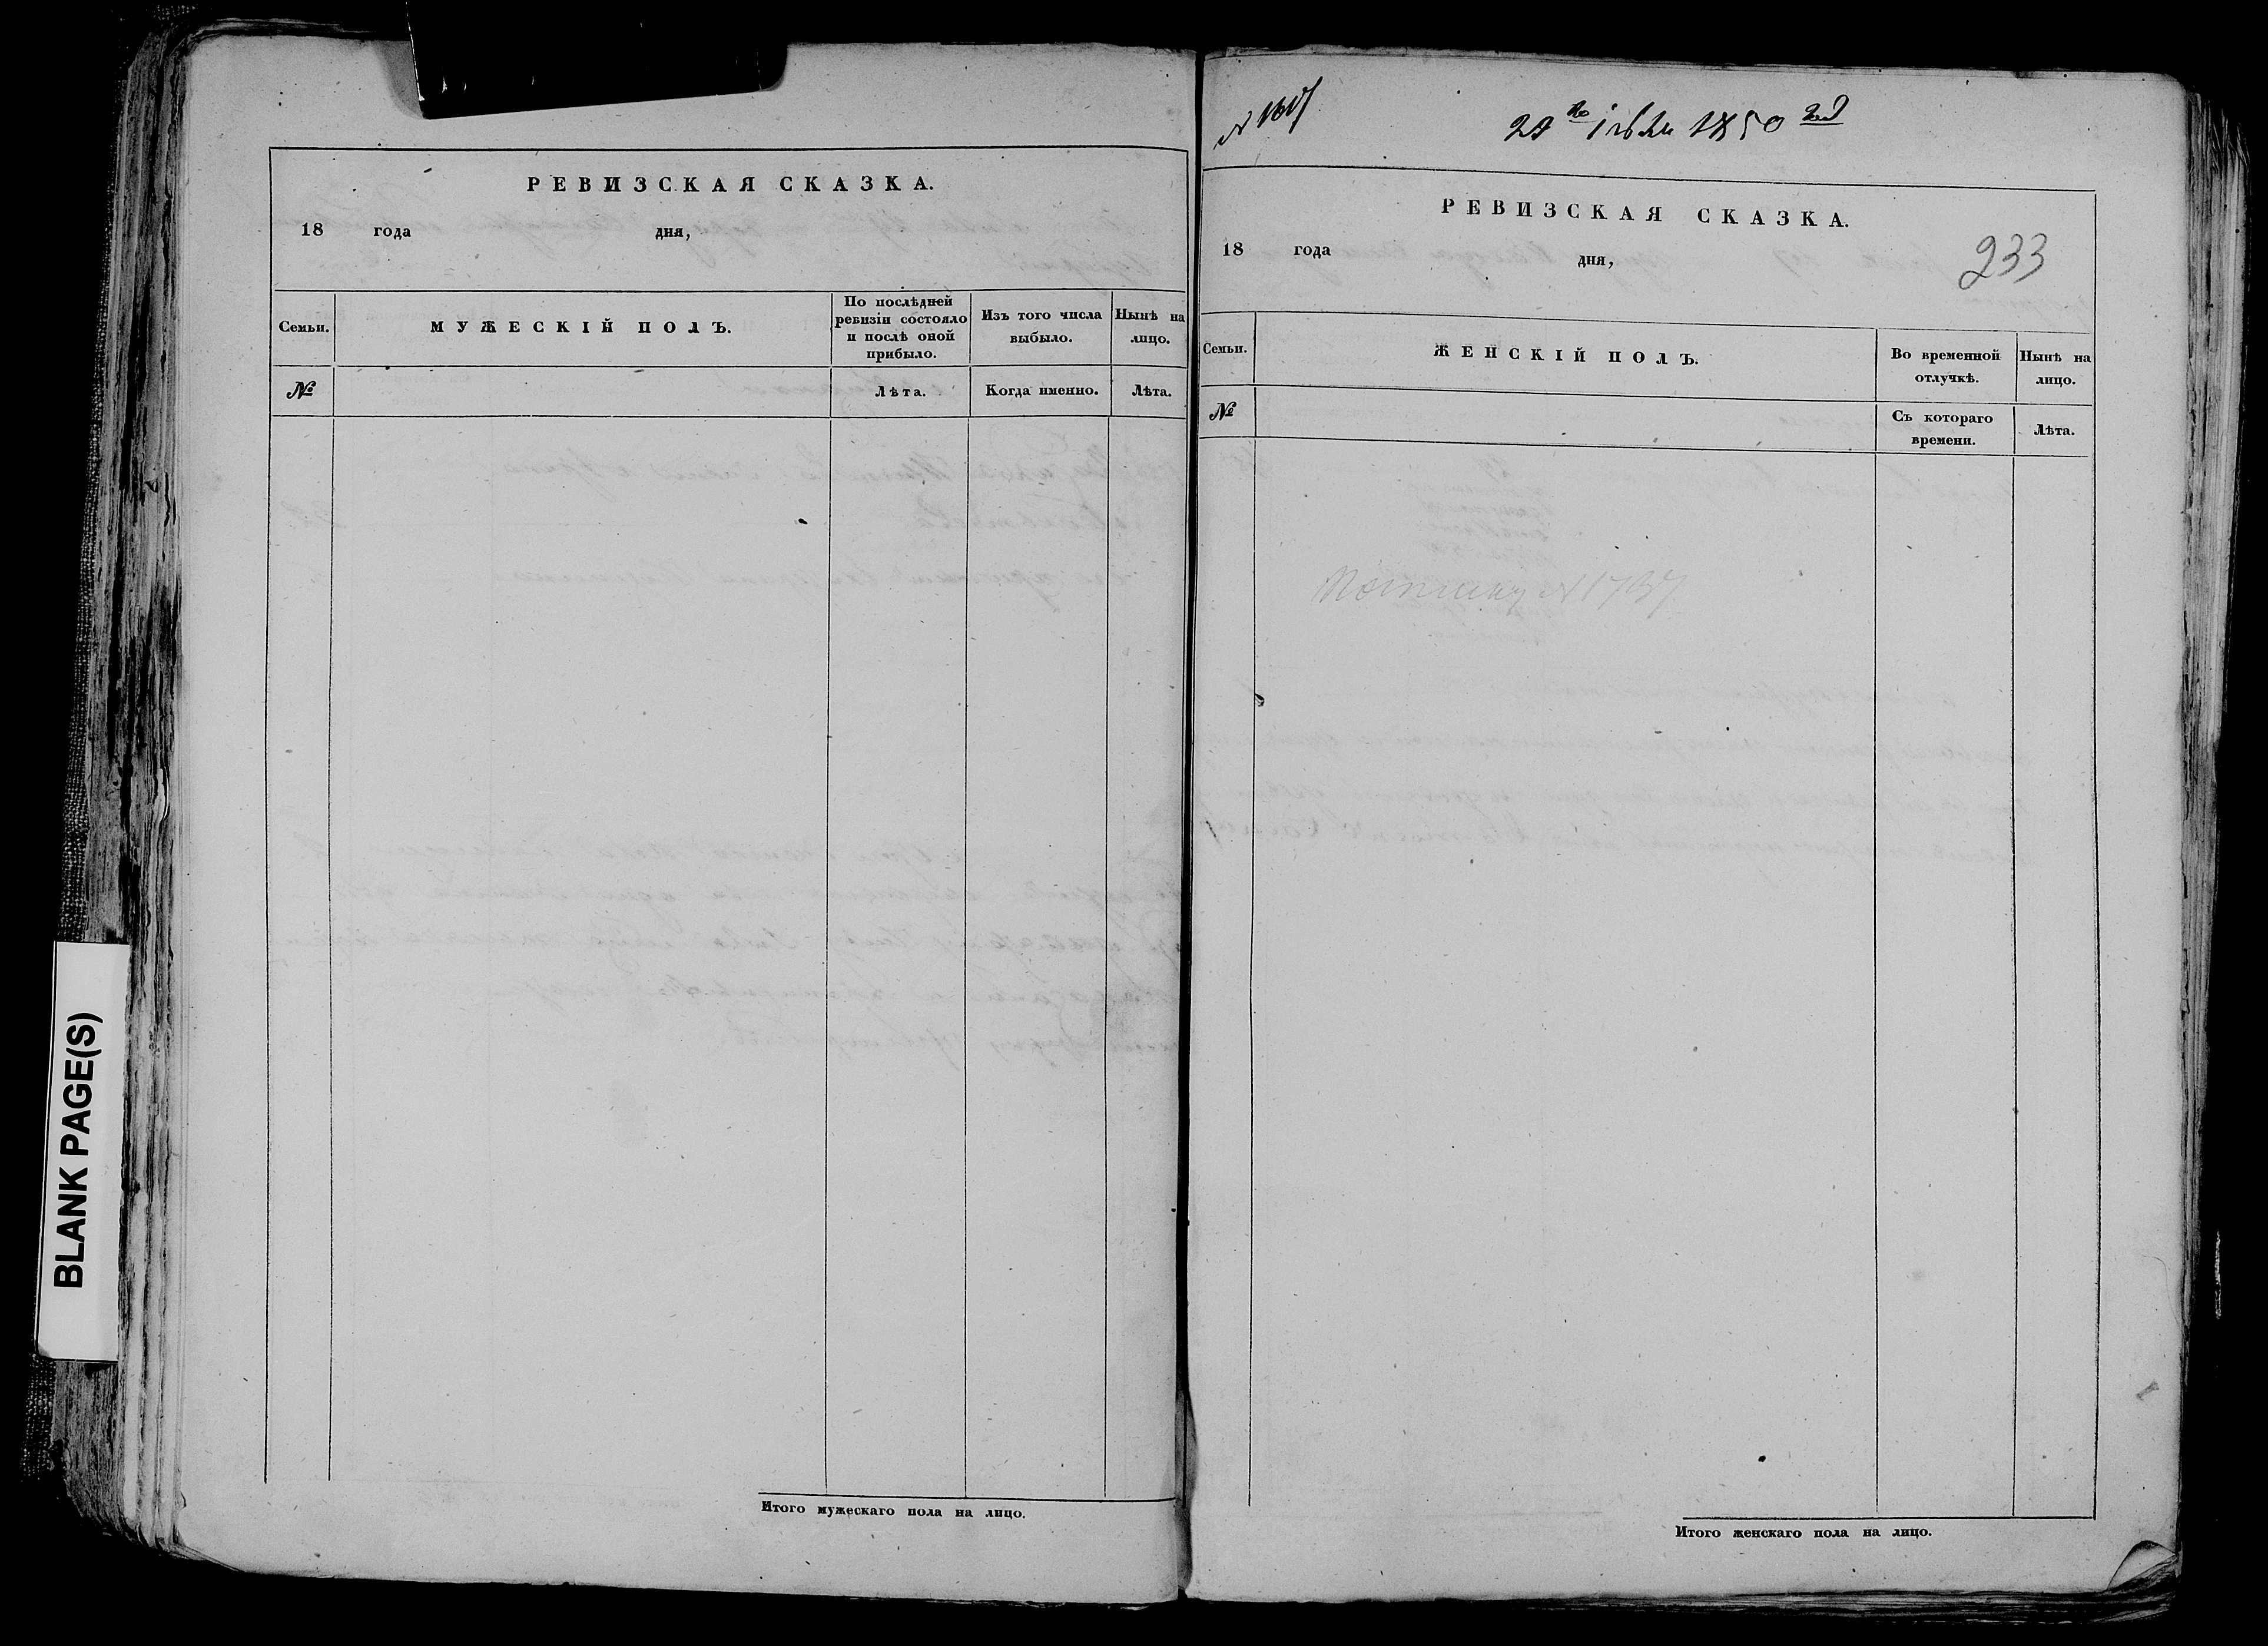 РЕВИЗСКАЯ СКАЗКА.
18 года дня,
Семьи.
МУЖЕСКІЙ ПОЛЪ.
По послѣдней
ревизіи состояло
и послѣ оной
прибыло.
Изъ того числа
выбыло.
Нынѣ на
лицо.
№
Лѣта.
Когда именно.
Лѣта.
Итого мужескаго пола на лицо.
BLANK PAGE(S)
1850
РЕВИЗСКАЯ СКАЗКА.
18 года дня,
233
Семьи.
ЖЕНСКІЙ ПОЛЪ.
Во временной
отлучкѣ.
Нынѣ на
лицо.
№
Съ котораго
времени.
Лѣта.
N 1737
Итого женскаго пола на лицо.